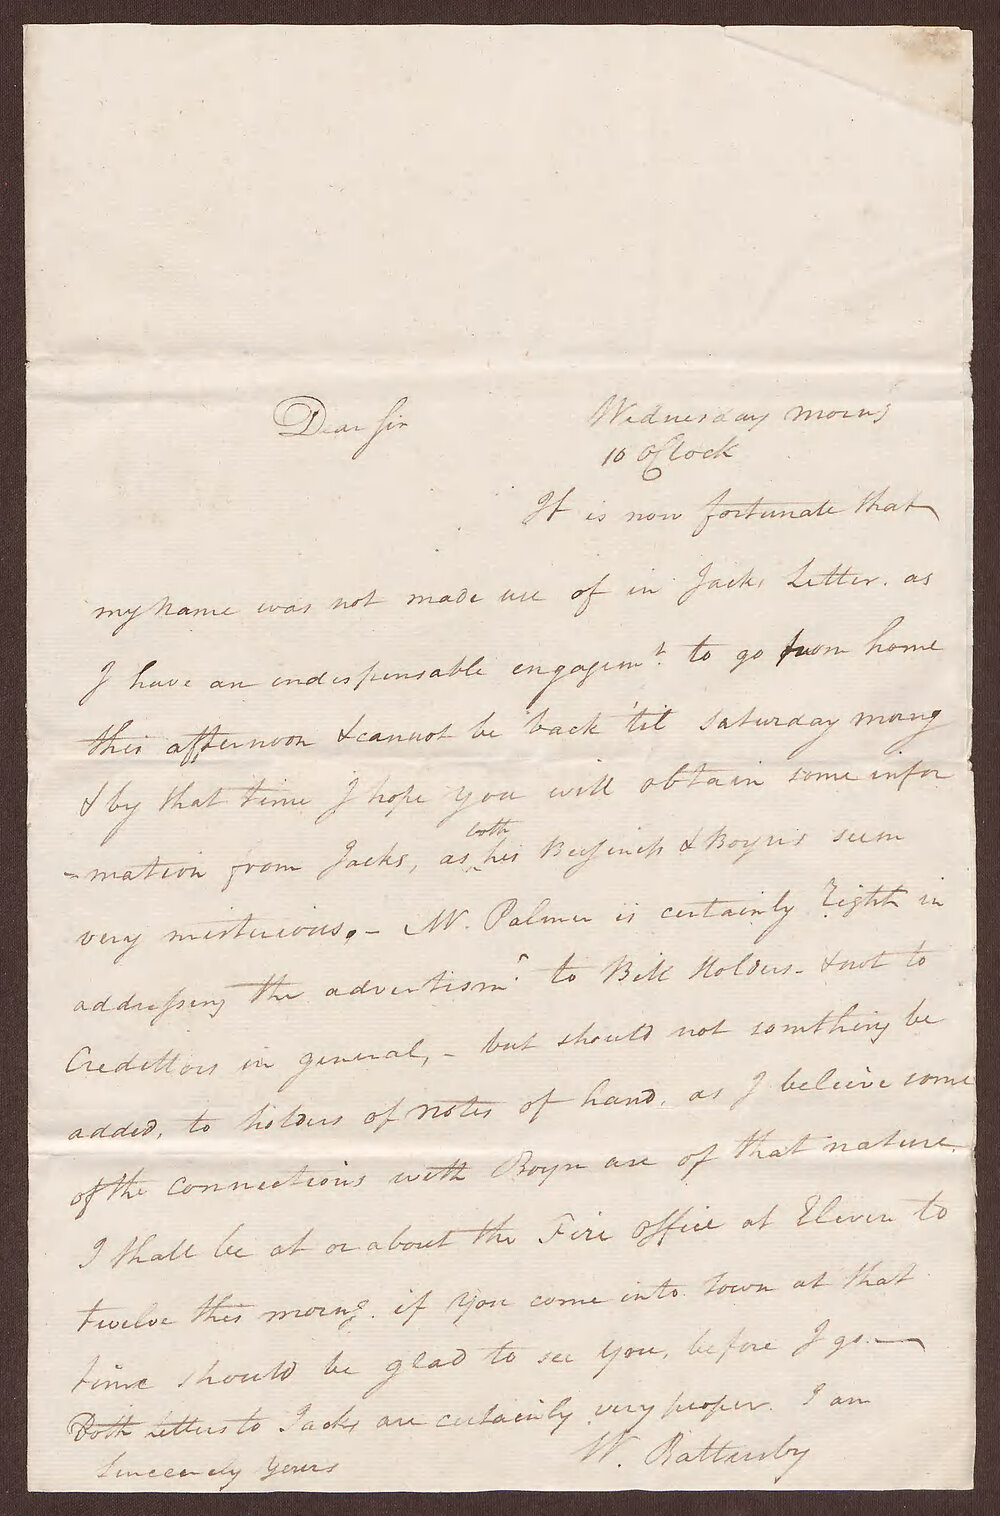 Dear Sir
Wednesday morng
10 OClock
It is now fortunate that
my name was not made use of in Jacks Letter. as
I have an indispensable engagemt. to go from home
this afternoon & cannot be back 'til Saturday morng
& by that time I hope you will obtain some infor
-mation from Jacks, as both his Business & Boyns seem
very misterious. - Mr. Palmer is certainly Right in
addressing the advertismt. to Bill Holders - & not to
Credittors in general, - but should not something be
added, to holders of notes of hand, as I beleive some
of the connections with Boyn are of that nature.
I shall be at or about the Fire office at Eleven to
twelve this morng. if you come into Town at that
time should be glad to see you, before I go. -
Both Letters to Jacks are certainly very proper. I am
Sincerely Yours
W. Battersby